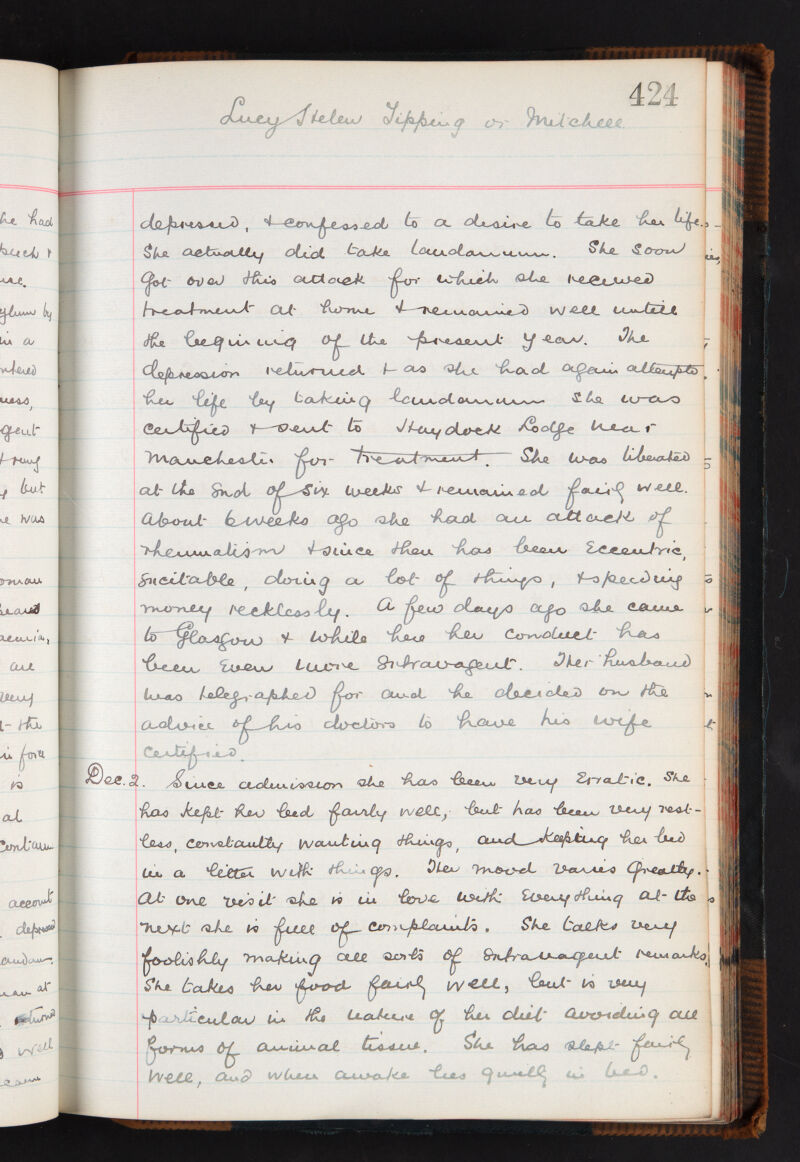 he had
such &
use.
asylum by
in a
ness,
gent
& rung
y but
he was
woman
are
very
- the
in form
is
at
account
depressed
laudan-
man at
well
424
Lucy Helen Tipping or Mitchell
depressed, & confessed to a desire to take her life.
She actually did take laudanum. She soon
Got over this attack for which she received
treatment at home & remained well untill
the begining of the present year. The
depression returned & as she had again attempts
her life by taking laudanum she was
certified & sent to Haydock Lodge near
Manchester for treatment. She was liberated
at the End of six weeks & remained fairly well.
About 6 weeks ago she had an attack of
rheumatism & since then has been Eccentric,
Excitable, doing a lot of things, & spending
money recklessly. A few days ago she came
to Glasgow & while here her conduct has
been Even more Extravagent. Her husband
was telegraphed for and he decided on the
advice of his doctors to have his wife
certified.
Dec. 2. Since admission she has been very Erratic. She
has kept her bed fairly well, but has been very rest-
less, constantly wanting things, and keeping her bed
in a litter with things. Her mood varies Greatly.
At one visit she is in love with Everything at the
next she is full of complaints. She talks very
foolishly making all sorts of Extravagent remarks.
She takes her food fairly well, but is very
particular in the nature of her diet avoiding all
forms of animal tissue. She has slept fairly
well, and when awake lies quietly in bed.